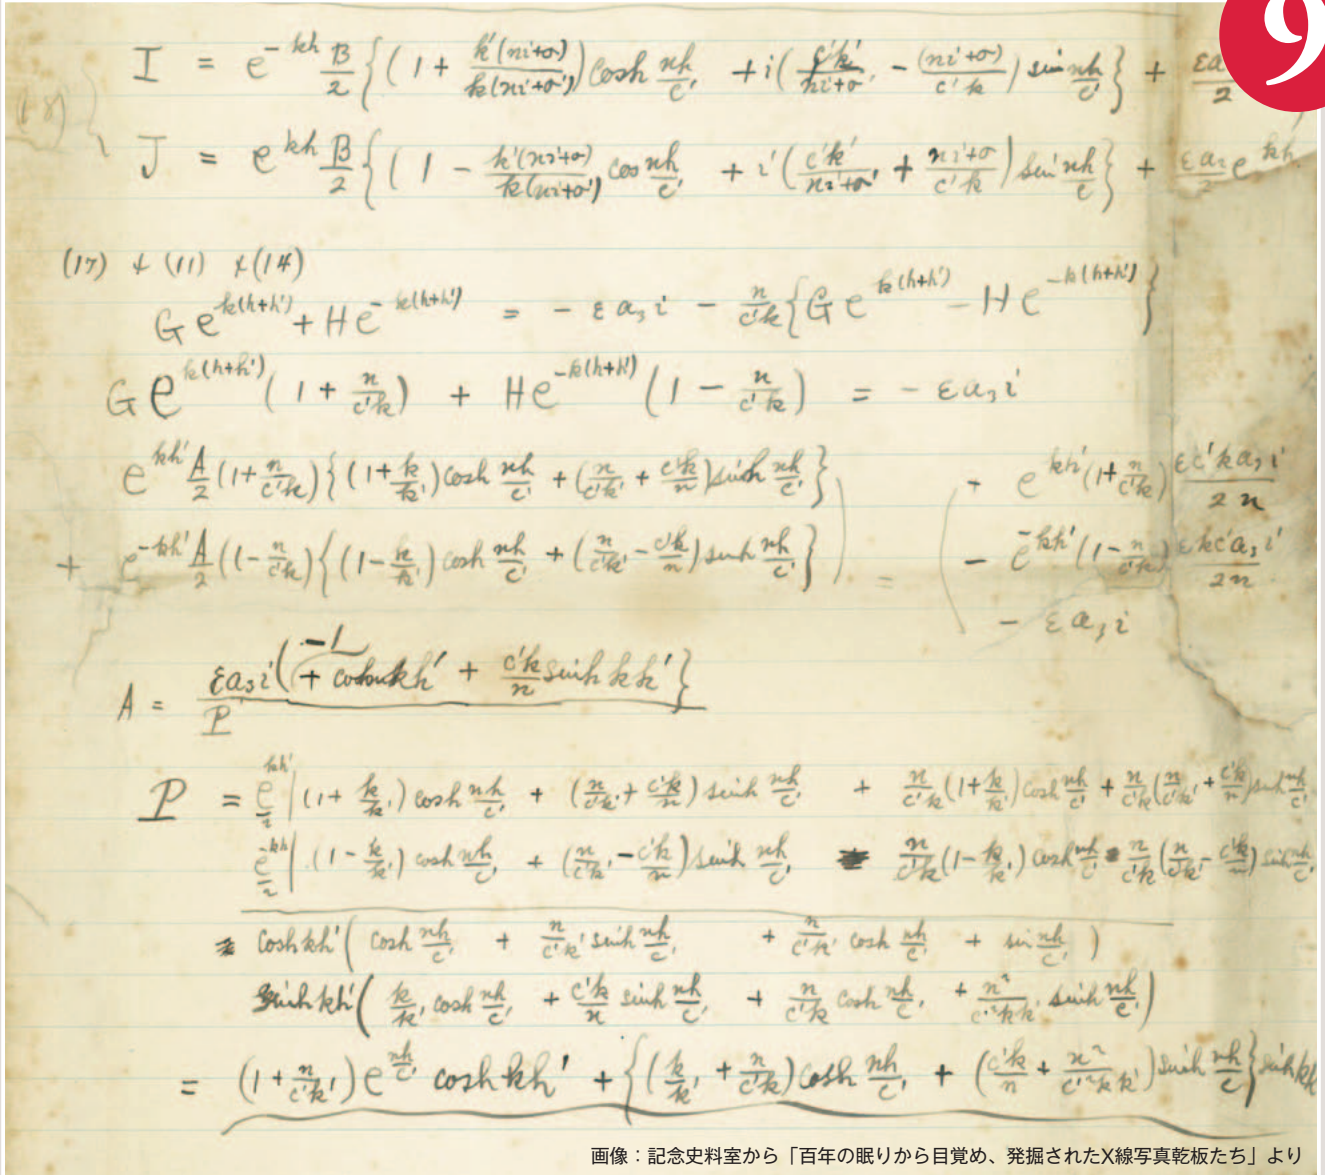 9
I = e^{-kh} B/2 { (1 + k'(ni+σ)/k(ni+σ')) cosh nh/c' + i( c'k'/ni+σ' - (ni+σ)/c'k ) sin nh/c' } + εa/2
(18)
J = e^{kh} B/2 { (1 - k'(ni+σ)/k(ni+σ') cos nh/c' + i( c'k'/ni+σ' + ni+σ/c'k ) sin nh/c } + εa₂/2 e^{kh}
(17) + (11) + (14)
G e^{k(h+h')} + H e^{-k(h+h')} = - εa₃i - n/c'k { G e^{k(h+h')} - H e^{-k(h+h')} }
G e^{k(h+h')} (1 + n/c'k) + H e^{-k(h+h')} (1 - n/c'k) = - εa₃i
e^{kh'} A/2 (1 + n/c'k) { (1 + k/k') cosh nh/c' + (n/c'k' + c'k/n) sinh nh/c' } + e^{kh'} (1 + n/c'k) εc'ka₃i/2n
+ e^{-kh'} A/2 (1 - n/c'k) { (1 - k/k') cosh nh/c' + (n/c'k' - c'k/n) sinh nh/c' } = - e^{-kh'} (1 - n/c'k) εkc'a₃i/2n
- εa₃i
A = εa₃i ( -1 + cosh kh' + c'k/n sinh kh' } / P
P = e^{kh'}/2 | (1 + k/k') cosh nh/c' + (n/c'k' + c'k/n) sinh nh/c' + n/c'k (1 + k/k') cosh nh/c' + n/c'k (n/c'k' + c'k/n) sinh nh/c'
e^{-kh'}/2 | (1 - k/k') cosh nh/c' + (n/c'k' - c'k/n) sinh nh/c' n/c'k (1 - k/k') cosh nh/c' n/c'k (n/c'k' - c'k/n) sinh nh/c'
= cosh kh' ( cosh nh/c' + n/c'k' sinh nh/c' + n/c'k' cosh nh/c' + sin nh/c' )
sinh kh' ( k/k' cosh nh/c' + c'k/n sinh nh/c' + n/c'k cosh nh/c' + n²/c'²kk' sinh nh/c' )
= (1 + n/c'k') e^{nh/c'} cosh kh' + { (k/k' + n/c'k) cosh nh/c' + (c'k/n + n²/c'²kk') sinh nh/c } sinh kh
画像：記念史料室から「百年の眠りから目覚め、発掘されたX線写真乾板たち」より